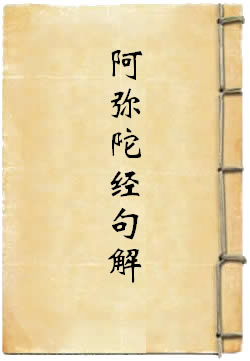 阿弥陀经句解